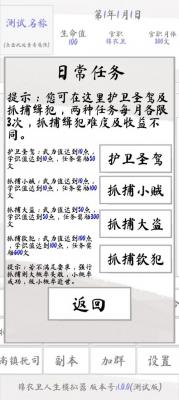 测试名称
(点击此处查看属性)
第1年1月1日
生命值
100
官职
锦衣卫
官职月俸
300文
日常任务
提示：您可在这里护卫圣驾
及抓捕缉犯，两种任务每月各限
3次，抓捕缉犯难度及收益不
同。
护卫圣驾：武力值达到10点，
学识值达到10点，任务奖励50
文
抓捕小贼：武力值达到10点，
学识值达到10点，任务奖励100
文
抓捕大盗：武力值达到50点，
学识值达到50点，任务奖励300
文
抓捕钦犯：武力值达到100点，
学识值达到100点，任务奖
励600文
提示：若不满足要求，强行
抓捕则大概率失败，小概率
成功，极小概率逝世。
护卫圣驾
抓捕小贼
抓捕大盗
抓捕钦犯
返回
南镇抚司
副本
加群
设置
锦衣卫人生模拟器 版本号:1.0.0(测试版)